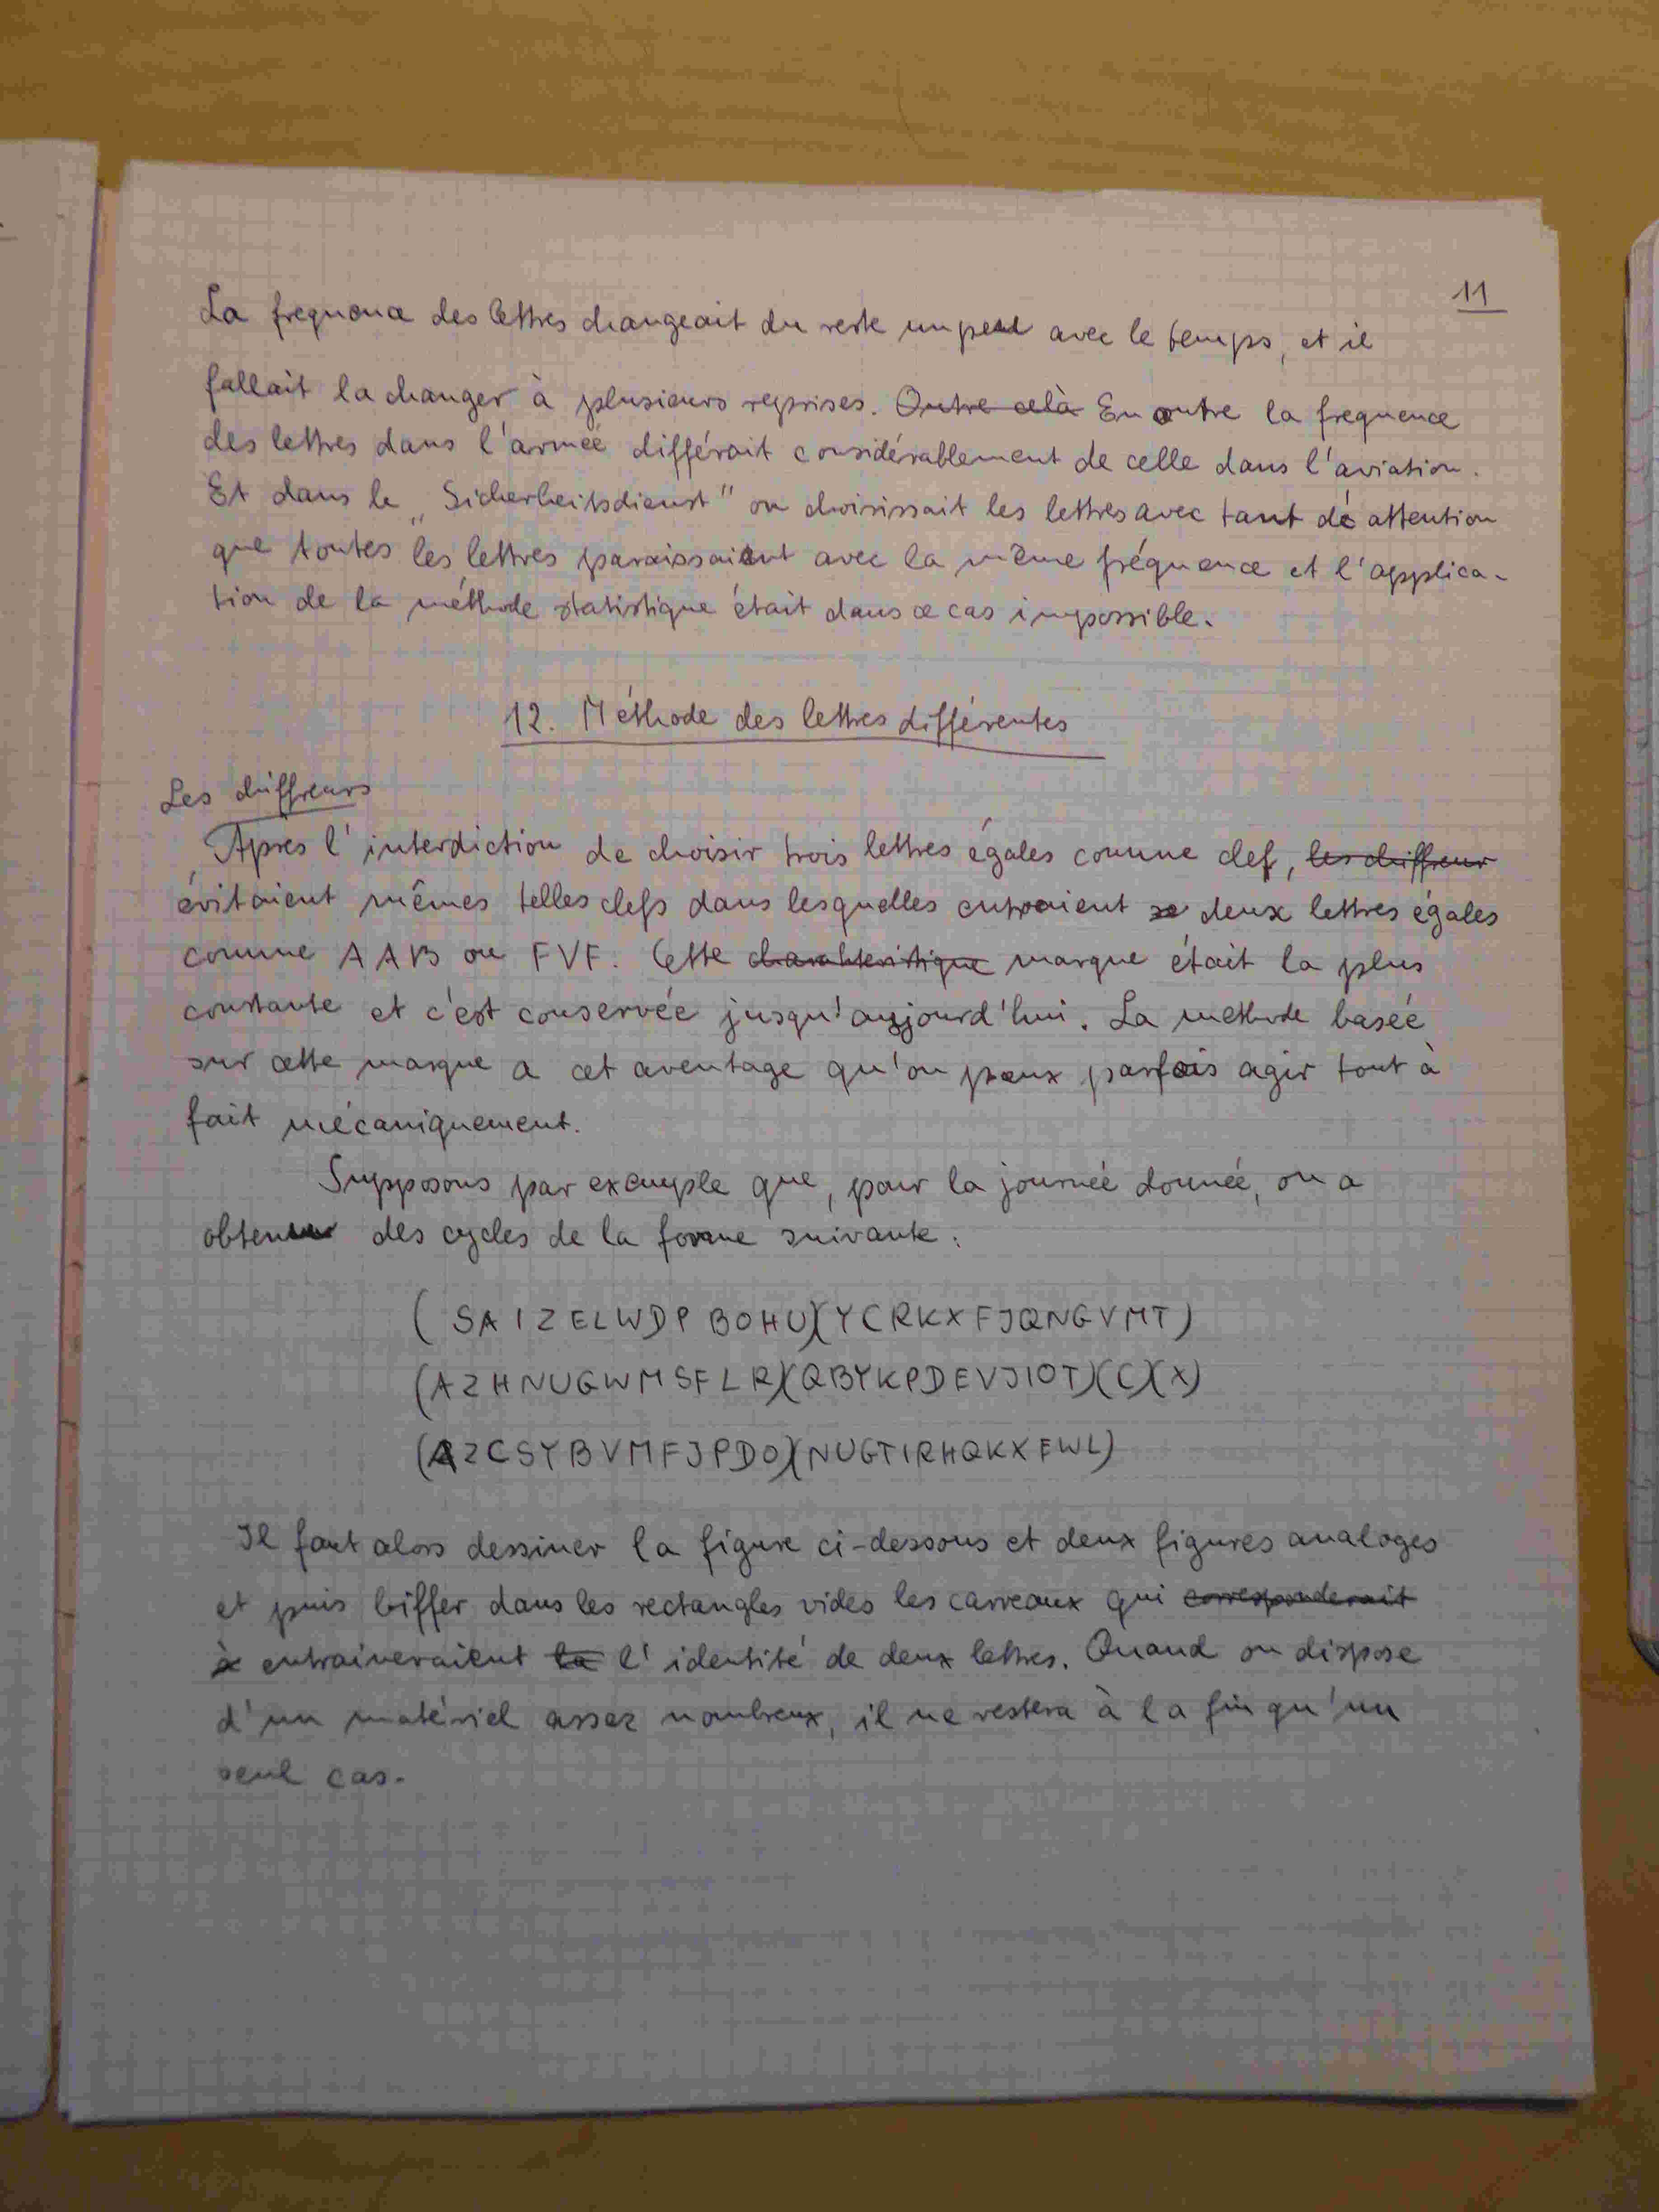 11
La frequence des lettres changeait du reste un peu avec le temps, et il
fallait la changer à plusieurs reprises. Outre celà En outre la frequence
des lettres dans l'armée différait considérablement de celle dans l'aviation.
Et dans le „Sicherheitsdienst" on choisissait les lettres avec tant de attention
que toutes les lettres paraissaient avec la même fréquence et l'applica-
tion de la méthode statistique était dans ce cas impossible.
12. Méthode des lettres différentes
Les chiffreurs
Apres l'interdiction de choisir trois lettres égales comme clef, les chiffreur
évitaient mêmes telles clefs dans lesquelles entraient deux lettres égales
comme AAB ou FVF. Cette charakteristique marque était la plus
constante et c'est conservée jusqu'aujourd'hui. La methode baseé
sur cette marque a cet aventage qu'on peux parfois agir tout à
fait mécaniquement.
Supposons par exemple que, pour la journeé donneé, on a
obtenu des cycles de la forme suivante:
(SAIZELWDPBOHU)(YCRKXFJQNGVMT)
(AZHNUGWMSFLR)(QBYKPDEVJIOT)(C)(X)
(AZCSYBVMFJPDO)(NUGTIRHQKXEWL)
Il faut alors dessiner la figure ci-dessous et deux figures analoges
et puis biffer dans les rectangles vides les carreaux qui corresponderait
à entraineraient la l'identité de deux lettres. Quand on dispose
d'un matériel assez nombreux, il ne restera à la fin qu'un
seul cas.